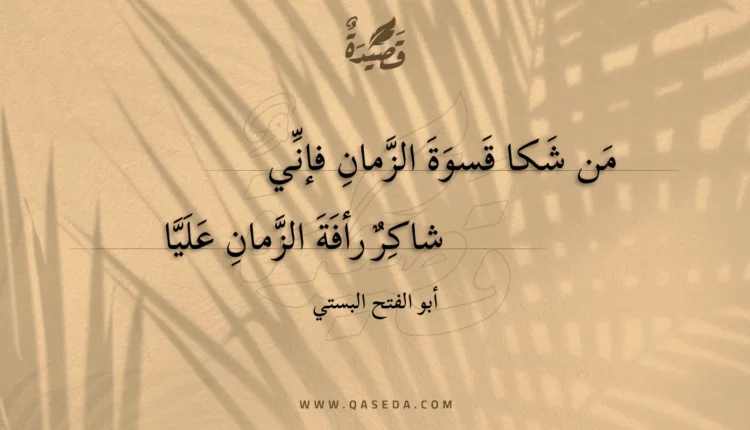 قَصِيْدَةٌ
مَن شَكا قَسوَةَ الزَّمانِ فإنِّي
شاكِرٌ رأفَةَ الزَّمانِ عَلَيَّا
أبو الفتح البستي
WWW.QASEDA.COM